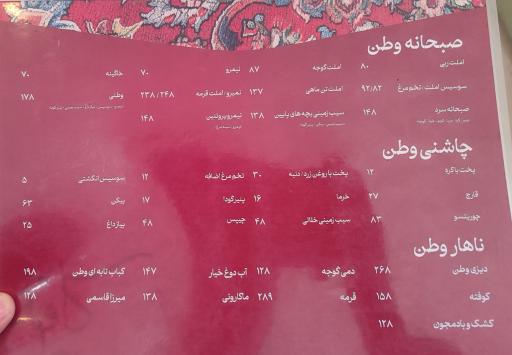 صبحانه وطن
املت ربی ۸۰ املت گوجه ۸۷ نیمرو ۷۰ خاگینه ۷۰
سوسیس املت، تخم مرغ ۹۲/۸۲ املت تن ماهی ۱۳۷ نیمرو / املت قرمه ۲۴۸ / ۲۳۸ وطنی ۱۷۸
صبحانه سرد ۱۴۸ سیب زمینی بچه های پایین ۱۳۸ نیمرو پروتئین ۱۴۸
چاشنی وطن
پخت با کره ۱۲ پخت با روغن زرد / دنبه ۳۰ تخم مرغ اضافه ۱۲ سوسیس انگشتی ۵
قارچ ۲۷ خرما ۱۶ پنیر گودا ۱۷ بیکن ۶۳
چوریتسو ۸۳ سیب زمینی خلالی ۴۸ چیپس ۴۸ پیاز داغ ۲۵
ناهار وطن
دیزی وطن ۲۶۸ دمی گوجه ۱۲۸ آب دوغ خیار ۱۴۷ کباب تابه ای وطن ۱۹۸
کوفته ۱۵۸ قرمه ۲۸۹ ماکارونی ۱۳۸ میرزا قاسمی ۱۲۸
کشک و بادمجون ۱۲۸